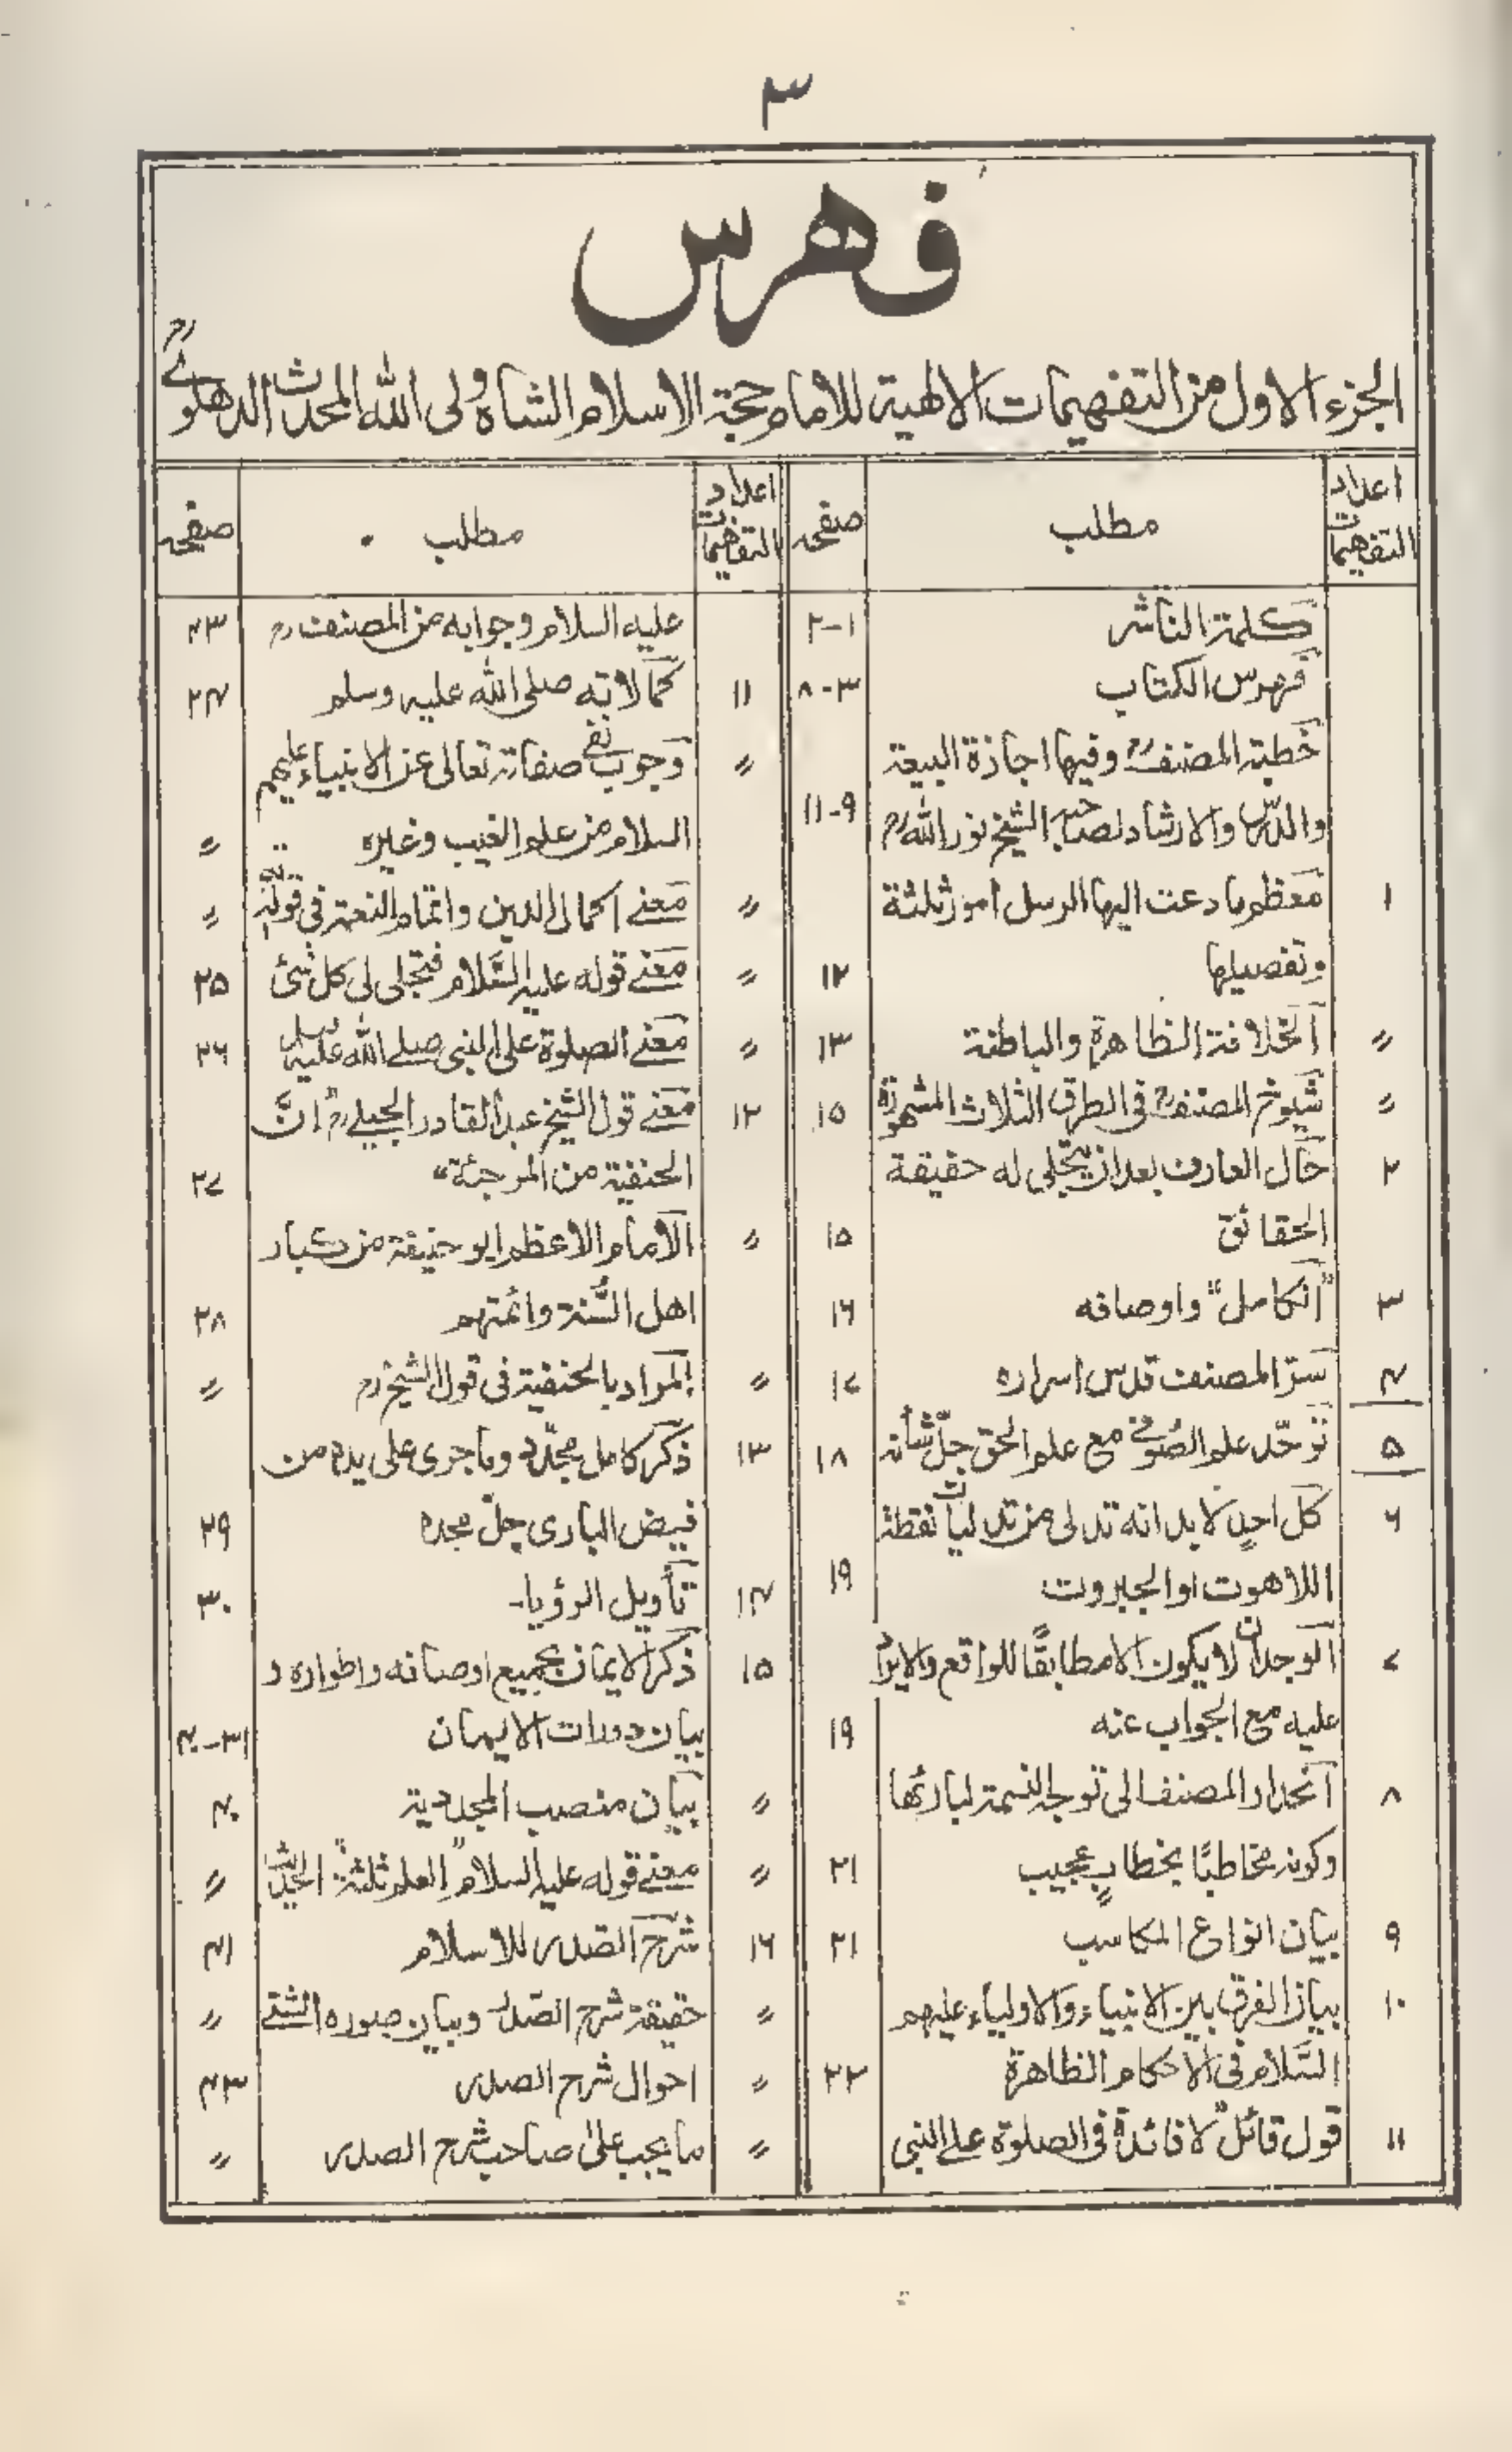 ٣
فهرس
الجزء الاول من التفهيمات الالهية للامام حجة الاسلام الشاه ولى الله المحدث الدهلوے رح
اعداد التفهيمات مطلب صفحه
كلمة الناشر ١-٢
فهرس الكتاب ٣-٨
خطبة المصنف رح وفيها اجازة البيعة
والدرس والارشاد لصاحبه الشيخ نور الله رح ٩-١١
١ معظم ما دعت اليها الرسل امور ثلثة
وتفصيلها ١٢
〃 الخلافة الظاهرة والباطنة ١٣
〃 شيوخ المصنف رح فى الطرق الثلاث المشهورة ١٥
٢ حال العارف بعد ان يتجلى له حقيقة
الحقائق ١٥
٣ "الكامل" واوصافه ١٦
٤ سرّ المصنف قدس اسراره ١٧
٥ توحّد علم الصُوفے مع علم الحق جلّ شأنه ١٨
٦ كل احدٍ لا بد انه تدلى من تدليات نقطة
اللاهوت او الجبروت ١٩
٧ الوجدان لا يكون الا مطابقًا للواقع والايراد
عليه مع الجواب عنه ١٩
٨ انحدار المصنف الى توجه النسمة لبارئها
وكونه مخاطبًا بخطابٍ عجيب ٢١
٩ بيان انواع المكاسب ٢١
١٠ بيان الفرق بين الانبياء والاولياء عليهم
السَّلام فى الاحكام الظاهرة ٢٢
١١ قول قائل لا فائدة فى الصلوة علے النبى
اعداد التفهيمات مطلب صفحه
عليه السلام وجوابه من المصنف رح ٢٣
١١ كمالاته صلى الله عليه وسلم ٢٤
〃 وجوب نفى صفاته تعالى عن الانبياء عليهم
السلام من علم الغيب وغيره 〃
〃 معنے اكمال الدين واتمام النعمة فى قوله تعالى 〃
〃 معنے قوله عليه السَّلام فتجلى لى كل شئ ٢٥
〃 معنے الصلوة على النبى صلے الله عليه وسلم ٢٦
١٢ معنے قول الشيخ عبد القادر الجيلے رح "انَّ
الحنفية من المرجئة" ٢٧
〃 الامام الاعظم ابو حنيفة من كبار
اهل السُّنة وائمتهم ٢٨
〃 المراد بالحنفية فى قول الشيخ رح 〃
١٣ ذكر كامل مجدّد وما جرى على يده من
فيض البارى جلّ مجده ٢٩
١٤ تأويل الرؤيا- ٣٠
١٥ ذكر الايمان بجميع اوصافه واطواره و
بيان دورات الايمان ٣١-٤٠
〃 بيان منصب المجددية ٤٠
〃 معنے قوله عليه السلام "العلم ثلثة" الحديث 〃
١٦ شرح الصدر للاسلام ٤١
〃 حقيقة شرح الصّدر وبيان صوره الشتے 〃
〃 احوال شرح الصدر ٤٣
〃 ما يجب علىٰ صاحب شرح الصدر 〃